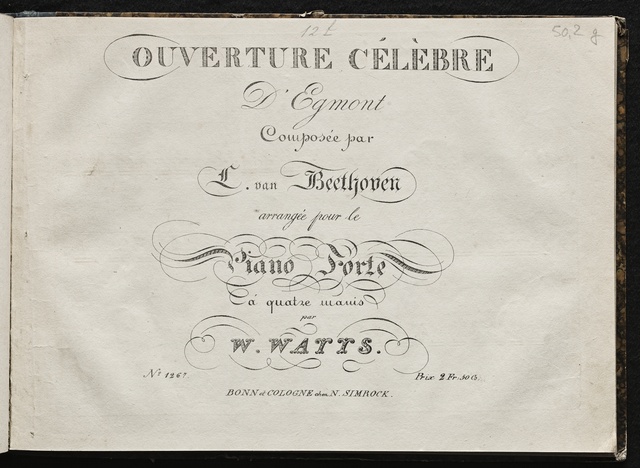 12 t
50,2 g
OUVERTURE CÉLÈBRE
D'Egmont
Composée par
L. van Beethoven
arrangée pour le
Piano Forte
à quatre mains
par
W. WATTS.
Nº 1267.
Prix 2 Fr. 50 Cs.
BONN et COLOGNE chez N. SIMROCK.